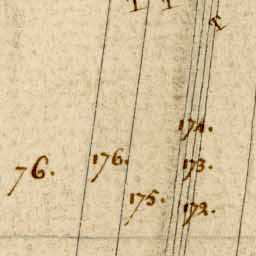 T T
T
174.
76. 176. 173.
175. 172.